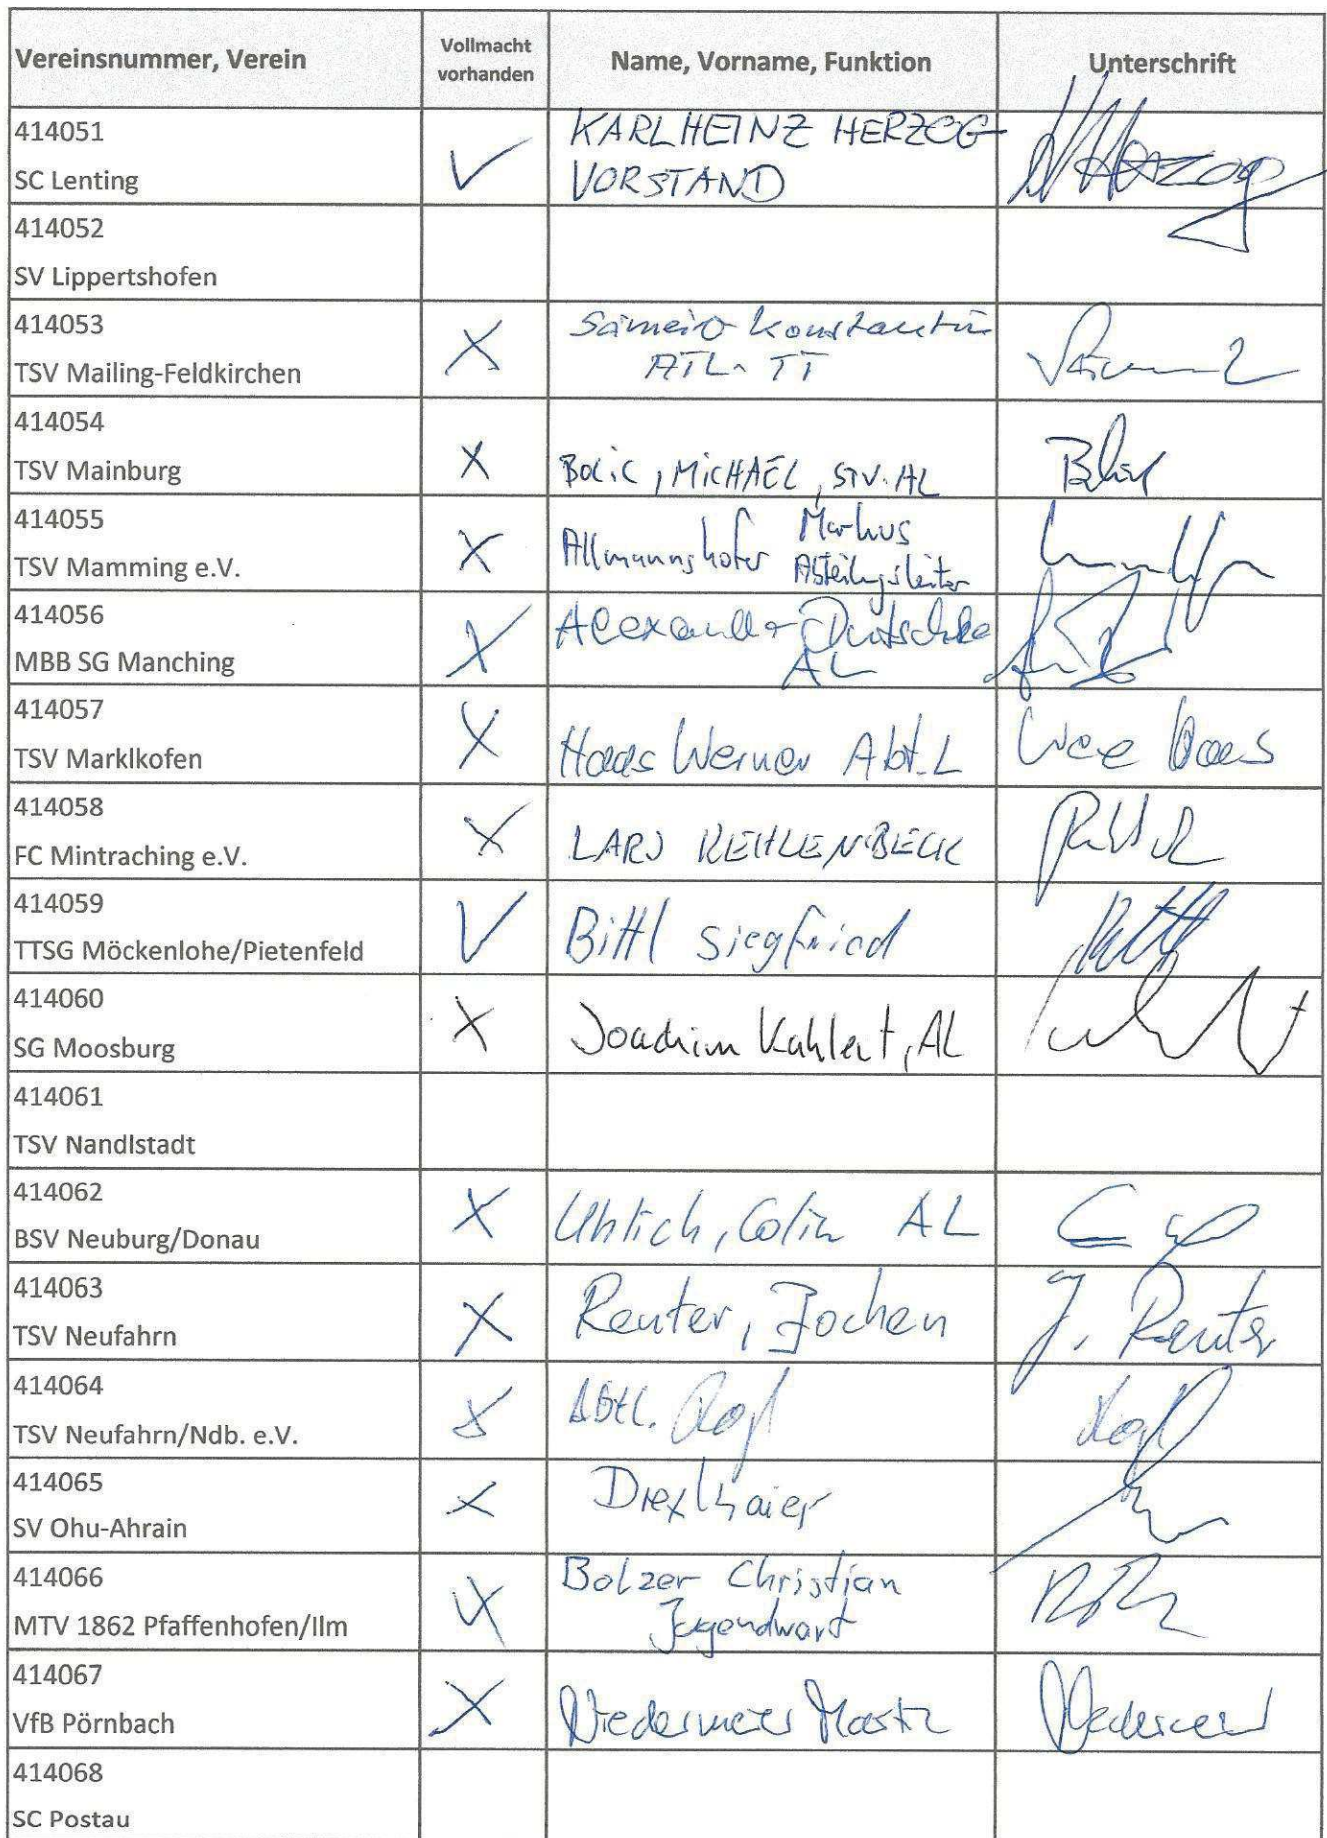 Vereinsnummer, Verein
Vollmacht
vorhanden
Name, Vorname, Funktion
Unterschrift
414051
SC Lenting
KARLHEINZ HERZOG
VORSTAND
Herzog
414052
SV Lippertshofen
414053
TSV Mailing-Feldkirchen
Konstantin
ATL. TT
414054
TSV Mainburg
Bolic, MICHAEL, STV. AL
414055
TSV Mamming e.V.
Allmannshofer Markus
Abteilungsleiter
414056
MBB SG Manching
Alexander
AL
414057
TSV Marklkofen
Haas Werner Abt.L
Haas
414058
FC Mintraching e.V.
LARS KEHLENBECK
414059
TTSG Möckenlohe/Pietenfeld
Bittl Siegfried
414060
SG Moosburg
Joachim Kahlert, AL
414061
TSV Nandlstadt
414062
BSV Neuburg/Donau
Uhlich, Colin AL
414063
TSV Neufahrn
Reuter, Jochen
J. Reuter
414064
TSV Neufahrn/Ndb. e.V.
Abtl.
414065
SV Ohu-Ahrain
Drexlmaier
414066
MTV 1862 Pfaffenhofen/Ilm
Bolzer Christian
Jugendwart
414067
VfB Pörnbach
Niedermeier Martin
414068
SC Postau